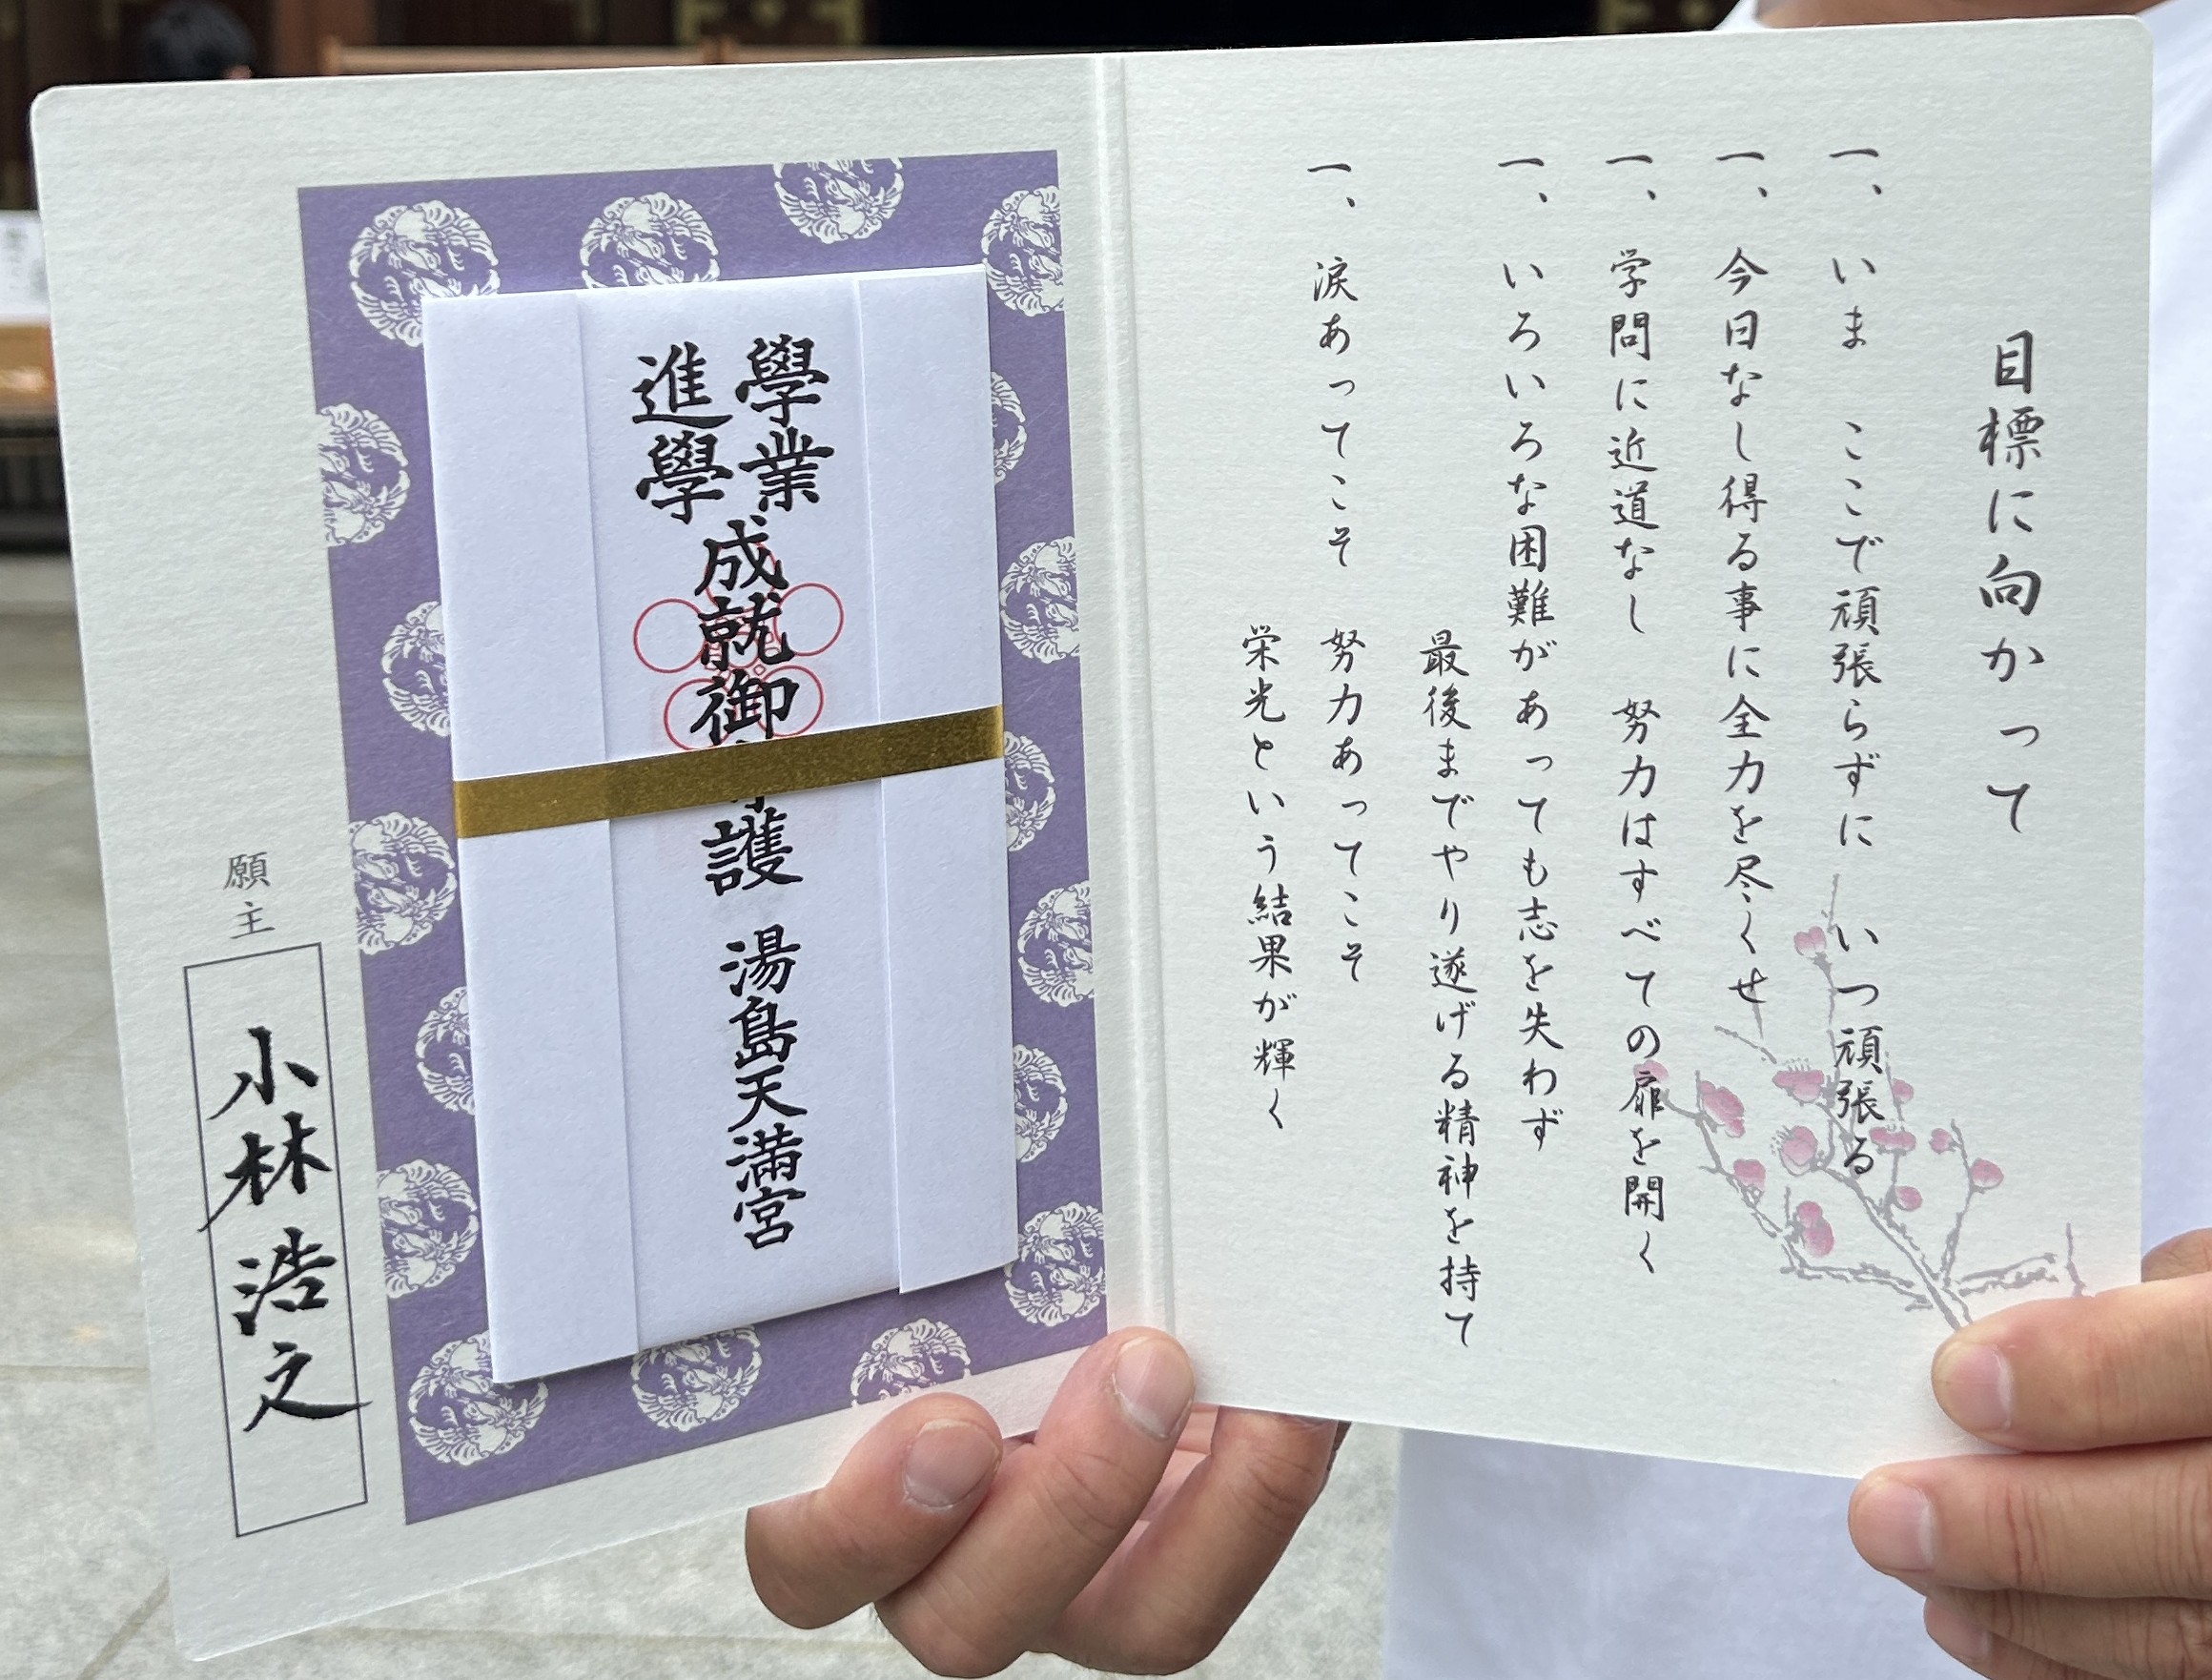 目標に向かって
一、いま ここで頑張らずに いつ頑張る
一、今日なし得る事に全力を尽くせ
一、学問に近道なし 努力はすべての扉を開く
一、いろいろな困難があっても志を失わず
最後までやり遂げる精神を持て
一、涙あってこそ
努力あってこそ
栄光という結果が輝く
學業
進學
成就御
護
湯島天満宮
願主
小林浩之